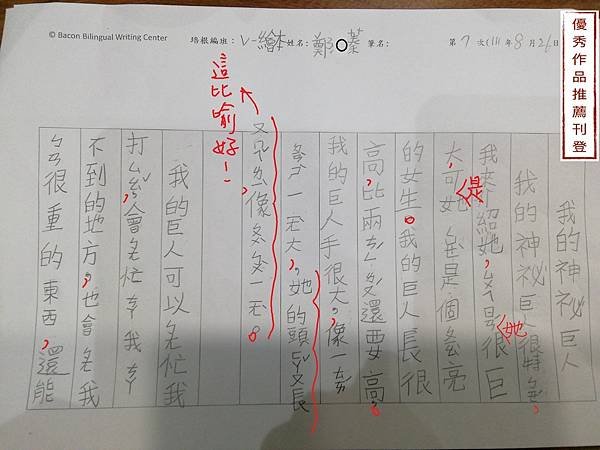 © Bacon Bilingual Writing Center 培根編班： 繪本 姓名：鄭○蓁 筆名： 第 7 次(111年8月26日
優秀作品推薦刊登
我的神祕巨人
我的神祕巨人很特
我來介紹她, 很巨
她
大,可她 是個 亮
是
的女生。我的巨人長很
高,比兩 還要高。
我的巨人手很大,像一
一 大,她的頭 又長
又 ,像 一 。
這比喻好!!
我的巨人可以ㄅㄤ忙我
打ㄙㄠˇ,會ㄅㄤ忙 我
不到的地方,也會ㄅㄤ我
ㄅㄢ很重的東西,還能